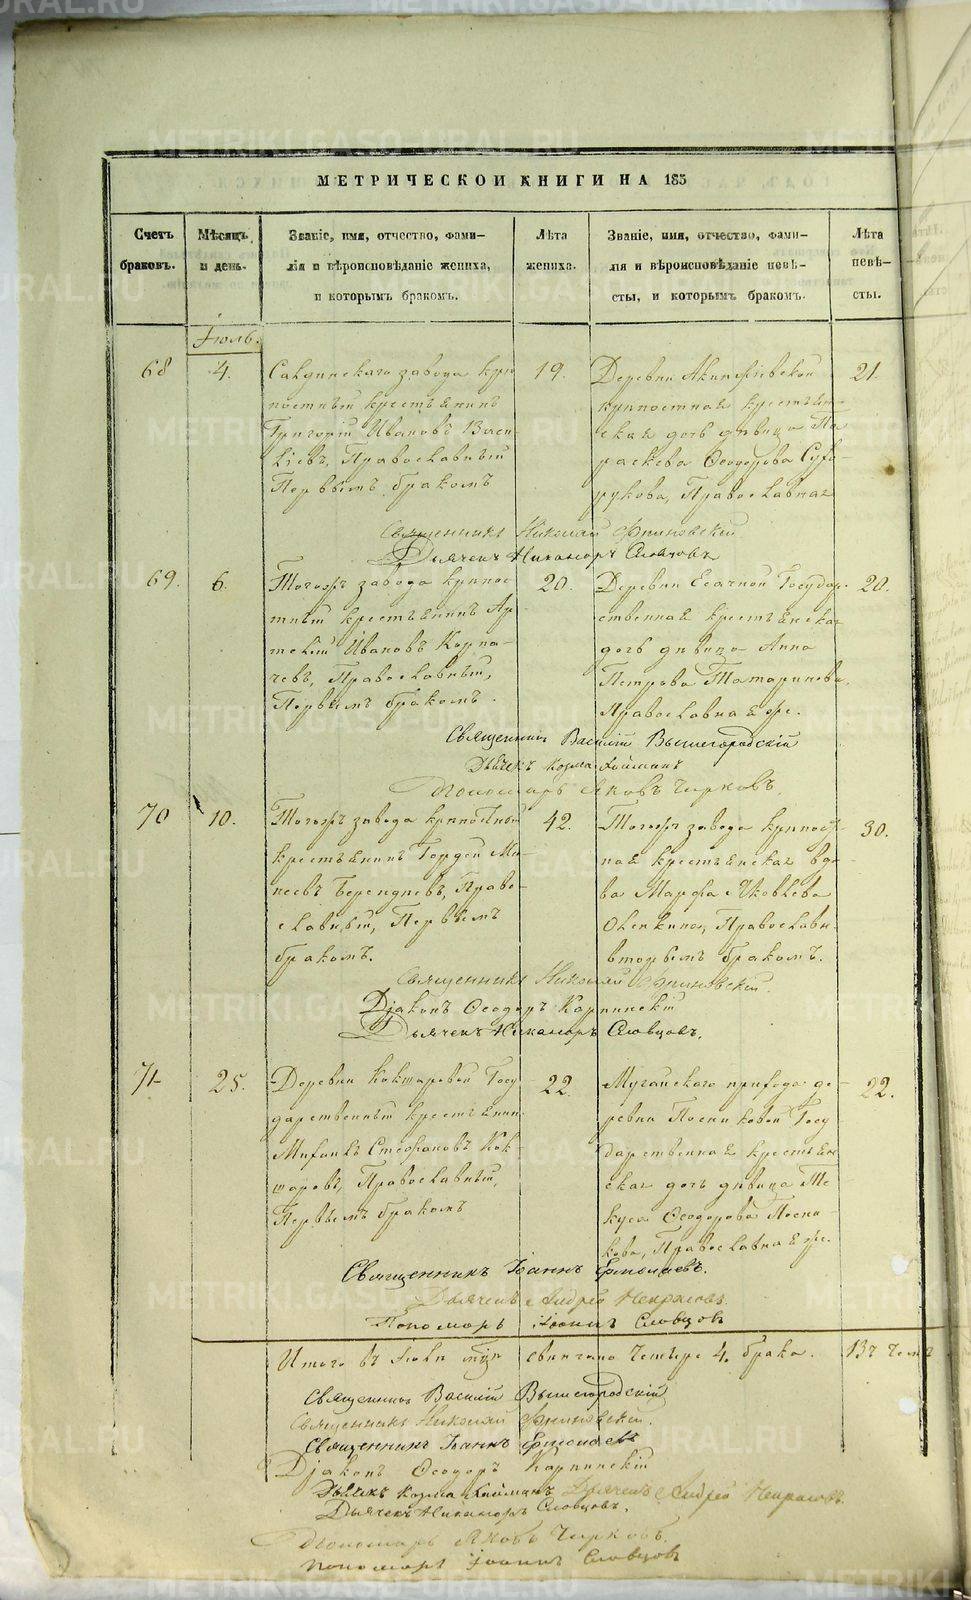 МЕТРИЧЕСКОЙ КНИГИ НА 185
Счетъ браковъ.
Мѣсяцъ и день.
Званіе, имя, отчество, фами-
лія и вѣроисповѣданіе жениха,
и которымъ бракомъ.
Лѣта жениха.
Званіе, имя, отчество, фами-
лія и вѣроисповѣданіе невѣ-
сты, и которымъ бракомъ.
Лѣта невѣ-
сты.
Іюль.
68
4.
Салдинскаго завода крѣ
постный крестьянинъ
Григорій Ивановъ Васи-
льевъ, Православный
Первымъ бракомъ
19.
Деревни Акинфіевской
крѣпостная крестьян-
ская дочь дѣвица Па
раскева Ѳеодорова Сухо-
рукова, Православная
21.
Священникъ Николай
Дьячекъ Никаноръ Словцовъ
69.
6.
Тогожъ завода крѣпос
тный крестьянинъ Ар
темій Ивановъ Корпа-
чевъ, Православный,
Первымъ бракомъ.
20.
Деревни Есачной Государ-
ственная крестьянская
дочь дѣвица Анна
Петрова Татаринова,
Православная же.
20.
Священникъ Василій Вышегородскій
Дьячекъ Козма
Пономарь Яковъ Чирковъ.
70
10.
Тогожъ завода крѣпостный
крестьянинъ Гордей Ми-
неевъ Берендѣевъ, Право-
славный, Первымъ
бракомъ.
42.
Тогожъ завода крѣпост-
ная крестьянская вдо-
ва Марѳа Яковлева
Оленкина, Православн
вторымъ бракомъ.
30.
Священникъ Николай
Діаконъ Ѳеодоръ Карпинскій
Дьячекъ Никаноръ Словцовъ.
71
25.
Деревни Кокшаровой Госу
дарственный крестьянин
Михаилъ Стефановъ Кок-
шаровъ, Православный,
Первымъ бракомъ
22.
Мугайскаго прихода де-
ревни Коковой Госу-
дарственная крестьян
ская дочь дѣвица Ѳе-
Ѳеодорова
кова, Православная же.
22.
Священникъ Іоаннъ Ермолаевъ.
Дьячекъ Андрей Некрасовъ
Пономарь Іоаннъ Словцовъ
Итого въ Іюлѣ мцѣ свѣнчано Четыре 4. брака.
Священникъ Василій Вышегородскій
Священникъ Николай
Священникъ Іоаннъ Ермолаевъ
Діаконъ Ѳеодоръ Карпинскій
Дьячекъ Козма Дьячекъ Андрей Некрасовъ.
Дьячекъ Никаноръ Словцовъ.
Пономарь Яковъ Чирковъ.
Пономарь Іоаннъ Словцовъ
METRIKI.GASO-URAL.RU